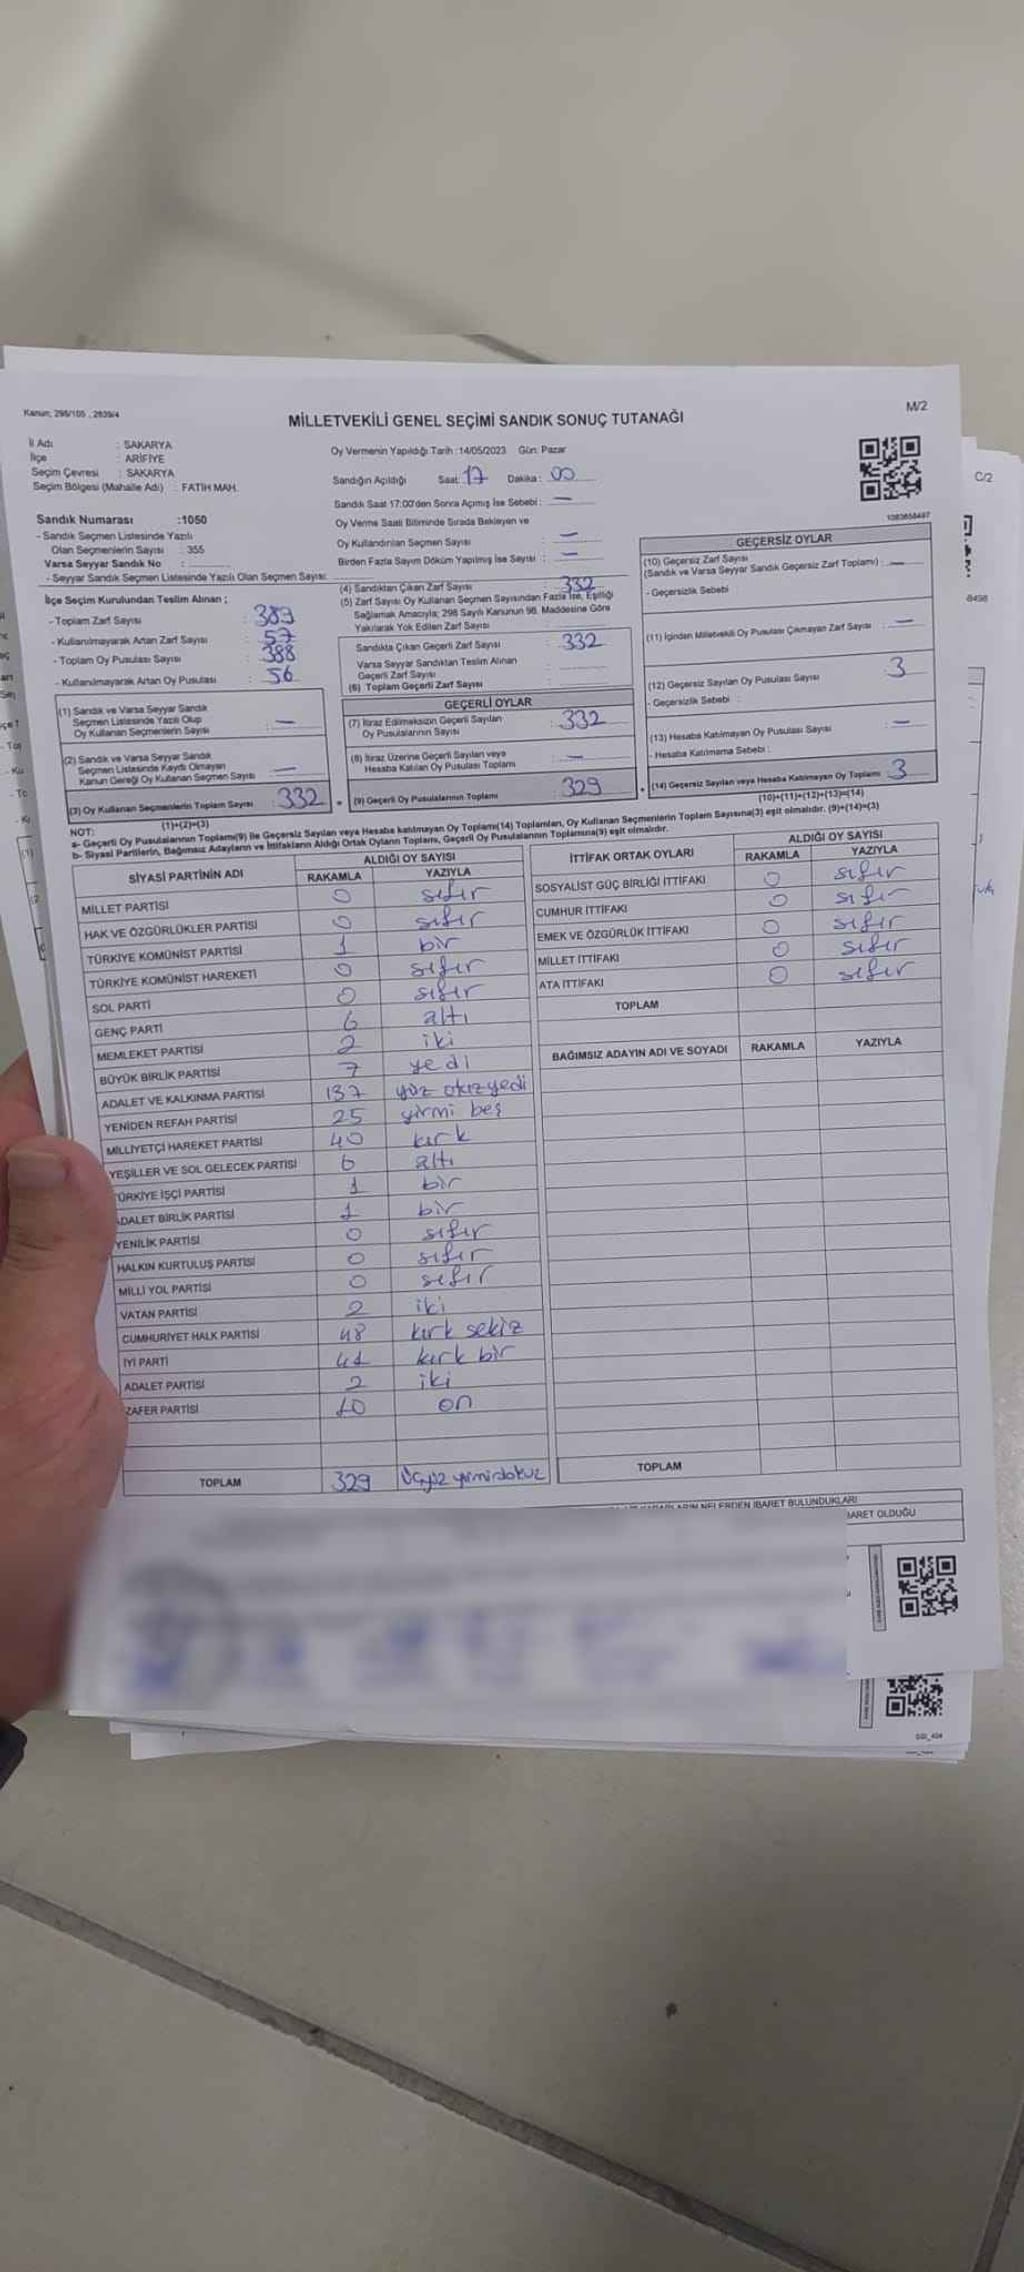 Kanun; 298/105 , 2839/4
M/2
MİLLETVEKİLİ GENEL SEÇİMİ SANDIK SONUÇ TUTANAĞI
C/2
İl Adı : SAKARYA
İlçe : ARİFİYE
Seçim Çevresi : SAKARYA
Seçim Bölgesi (Mahalle Adı) : FATİH MAH.
Oy Vermenin Yapıldığı Tarih : 14/05/2023 Gün: Pazar
Sandığın Açıldığı Saat: 17 Dakika : 00
Sandık Saat 17:00'den Sonra Açımış İse Sebebi : —
Oy Verme Saati Bitiminde Sırada Bekleyen ve
Oy Kullandırılan Seçmen Sayısı : —
Birden Fazla Sayım Döküm Yapılmış İse Sayısı : —
Sandık Numarası :1050
- Sandık Seçmen Listesinde Yazılı
Olan Seçmenlerin Sayısı : 355
Varsa Seyyar Sandık No :
- Seyyar Sandık Seçmen Listesinde Yazılı Olan Seçmen Sayısı:
İlçe Seçim Kurulundan Teslim Alınan ;
- Toplam Zarf Sayısı : 389
- Kullanılmayarak Artan Zarf Sayısı : 57
- Toplam Oy Pusulası Sayısı : 388
- Kullanılmayarak Artan Oy Pusulası : 56
(1) Sandık ve Varsa Seyyar Sandık
Seçmen Listesinde Yazılı Olup
Oy Kullanan Seçmenlerin Sayısı : —
(2) Sandık ve Varsa Seyyar Sandık
Seçmen Listesinde Kaydı Olmayan
Kanun Gereği Oy Kullanan Seçmen Sayısı : —
(3) Oy Kullanan Seçmenlerin Toplam Sayısı : 332
(1)+(2)=(3)
(4) Sandıktan Çıkan Zarf Sayısı : 332
(5) Zarf Sayısı Oy Kullanan Seçmen Sayısından Fazla İse, Eşitliği
Sağlamak Amacıyla; 298 Sayılı Kanunun 98. Maddesine Göre
Yakılarak Yok Edilen Zarf Sayısı
Sandıkta Çıkan Geçerli Zarf Sayısı : 332
Varsa Seyyar Sandıktan Teslim Alınan
Geçerli Zarf Sayısı
(6) Toplam Geçerli Zarf Sayısı
GEÇERLİ OYLAR
(7) İtiraz Edilmeksizin Geçerli Sayılan
Oy Pusulalarının Sayısı : 332
(8) İtiraz Üzerine Geçerli Sayılan veya
Hesaba Katılan Oy Pusulası Toplamı : —
(9) Geçerli Oy Pusulalarının Toplamı : 329
1083658497
GEÇERSİZ OYLAR
(10) Geçersiz Zarf Sayısı
(Sandık ve Varsa Seyyar Sandık Geçersiz Zarf Toplamı) : —
- Geçersizlik Sebebi
(11) İçinden Milletvekili Oy Pusulası Çıkmayan Zarf Sayısı : —
(12) Geçersiz Sayılan Oy Pusulası Sayısı : 3
- Geçersizlik Sebebi :
(13) Hesaba Katılmayan Oy Pusulası Sayısı : —
- Hesaba Katılmama Sebebi :
(14) Geçersiz Sayılan veya Hesaba Katılmayan Oy Toplamı : 3
(10)+(11)+(12)+(13)=(14)
NOT:
a- Geçerli Oy Pusulalarının Toplamı(9) ile Geçersiz Sayılan veya Hesaba katılmayan Oy Toplamı(14) Toplamları, Oy Kullanan Seçmenlerin Toplam Sayısına(3) eşit olmalıdır. (9)+(14)=(3)
b- Siyasi Partilerin, Bağımsız Adayların ve İttifakların Aldığı Ortak Oyların Toplamı, Geçerli Oy Pusulalarının Toplamına(9) eşit olmalıdır.
SİYASİ PARTİNİN ADI ALDIĞI OY SAYISI
RAKAMLA YAZIYLA
MİLLET PARTİSİ 0 sıfır
HAK VE ÖZGÜRLÜKLER PARTİSİ 0 sıfır
TÜRKİYE KOMÜNİST PARTİSİ 1 bir
TÜRKİYE KOMÜNİST HAREKETİ 0 sıfır
SOL PARTİ 0 sıfır
GENÇ PARTİ 6 altı
MEMLEKET PARTİSİ 2 iki
BÜYÜK BİRLİK PARTİSİ 7 yedi
ADALET VE KALKINMA PARTİSİ 137 yüz otızyedi
YENİDEN REFAH PARTİSİ 25 yirmi beş
MİLLİYETÇİ HAREKET PARTİSİ 40 kırk
YEŞİLLER VE SOL GELECEK PARTİSİ 6 altı
ÜRKİYE İŞÇİ PARTİSİ 1 bir
ADALET BİRLİK PARTİSİ 1 bir
YENİLİK PARTİSİ 0 sıfır
HALKIN KURTULUŞ PARTİSİ 0 sıfır
MİLLİ YOL PARTİSİ 0 sıfır
VATAN PARTİSİ 2 iki
CUMHURİYET HALK PARTİSİ 48 kırk sekiz
İYİ PARTİ 41 kırk bir
ADALET PARTİSİ 2 iki
ZAFER PARTİSİ 10 on
TOPLAM 329 Üçyüz yirmidokuz
İTTİFAK ORTAK OYLARI ALDIĞI OY SAYISI
RAKAMLA YAZIYLA
SOSYALİST GÜÇ BİRLİĞİ İTTİFAKI 0 sıfır
CUMHUR İTTİFAKI 0 sıfır
EMEK VE ÖZGÜRLÜK İTTİFAKI 0 sıfır
MİLLET İTTİFAKI 0 sıfır
ATA İTTİFAKI 0 sıfır
TOPLAM
BAĞIMSIZ ADAYIN ADI VE SOYADI RAKAMLA YAZIYLA
TOPLAM
NELERDEN İBARET BULUNDUKLARI
BARET OLDUĞU